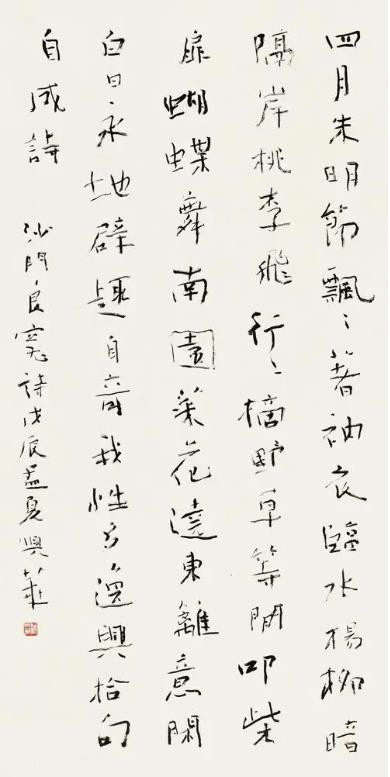 四月朱明節飄〻著衲衣臨水楊柳暗
隔岸桃李飛行〻摘野草等閑叩柴
扉蝴蝶舞南園菜花遶東籬意閑
白日永地僻趣自奇我性多逸興拾句
自成詩 沙門良寬詩戊辰孟夏興